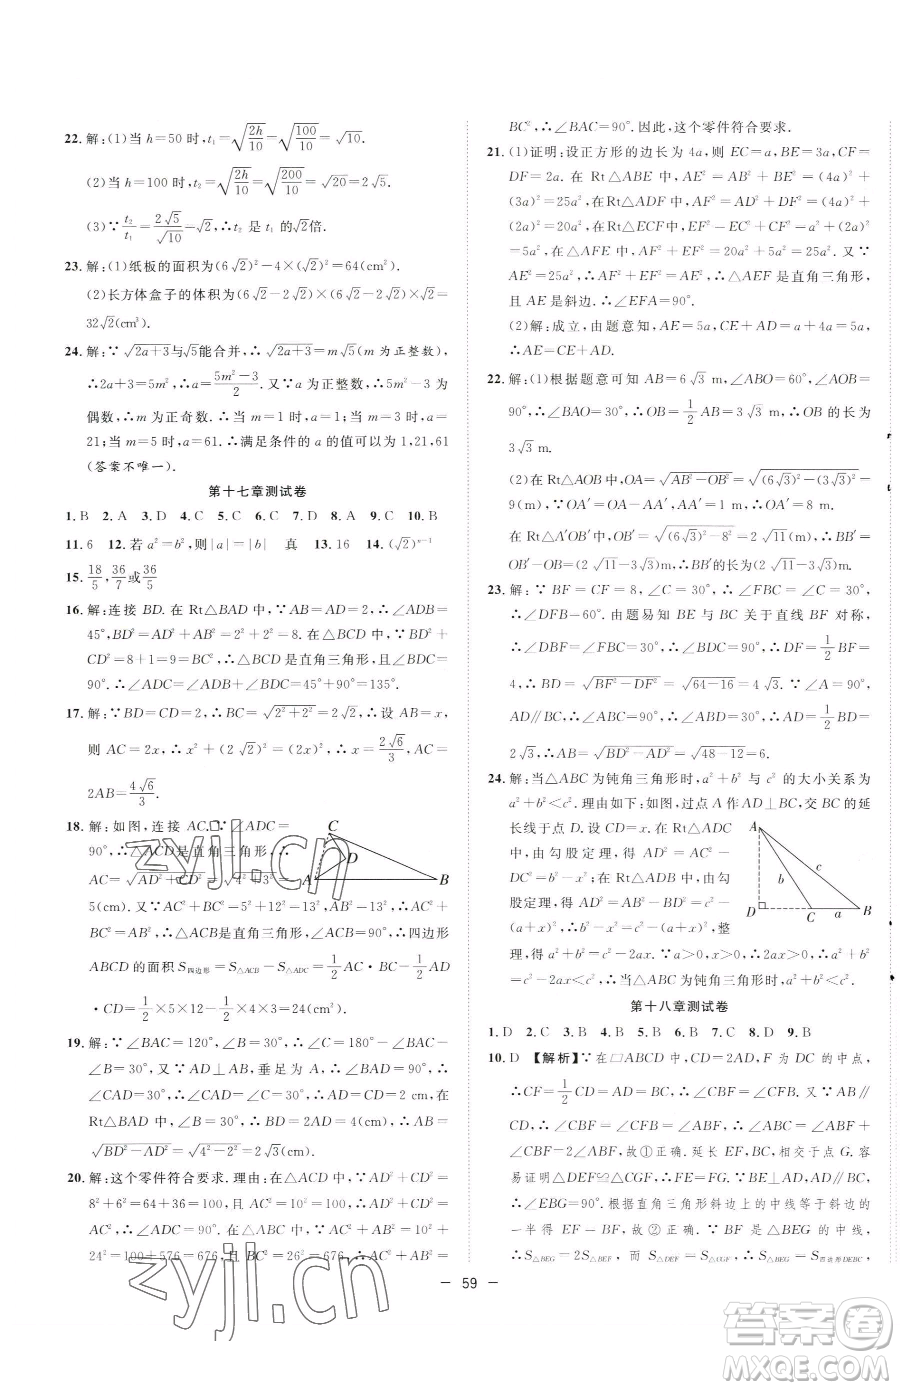 22. 解:(1)当 h=50 时,t₁=√(2h/10)=√(100/10)=√10.
(2)当 h=100 时,t₂=√(2h/10)=√(200/10)=√20=2√5.
(3)∵t₂/t₁=2√5/√10=√2,∴t₂ 是 t₁ 的√2倍.
23. 解:(1)纸板的面积为(6√2)²-4×(√2)²=64(cm²).
(2)长方体盒子的体积为(6√2-2√2)×(6√2-2√2)×√2=
32√2(cm³).
24. 解:∵√(2a+3)与√5能合并,∴√(2a+3)=m√5(m 为正整数),
∴2a+3=5m²,∴a=(5m²-3)/2.∵a 为正整数,∴5m²-3 为
偶数,∴m 为正奇数.当 m=1 时,a=1;当 m=3 时,a=
21;当 m=5 时,a=61.∴满足条件的 a 的值可以为 1,21,61
(答案不唯一).
第十七章测试卷
1. B 2. A 3. D 4. C 5. C 6. C 7. D 8. A 9. C 10. B
11. 6 12. 若 a²=b²,则|a|=|b| 真 13. 16 14. (√2)ⁿ⁻¹
15. 18/5,36/7或36/5
16. 解:连接 BD.在 Rt△BAD 中,∵AB=AD=2,∴∠ADB=
45°,BD²=AD²+AB²=2²+2²=8.在△BCD 中,∵BD²+
CD²=8+1=9=BC²,∴△BCD 是直角三角形,且∠BDC=
90°.∴∠ADC=∠ADB+∠BDC=45°+90°=135°.
17. 解:∵BD=CD=2,∴BC=√(2²+2²)=2√2,∴设 AB=x,
则 AC=2x,∴x²+(2√2)²=(2x)²,∴x=2√6/3,AC=
2AB=4√6/3.
18. 解:如图,连接 AC.∵∠ADC=
90°,∴△ACD是直角三角形,∴
AC=√(AD²+CD²)=√(4²+3²)=
5(cm).又∵AC²+BC²=5²+12²=13²=AB²,∴∠ACB=
90°,∴△ACB 是直角三角形,∠ACB=90°,∴四边形
ABCD 的面积 S四边形=S△ACB-S△ADC=1/2AC·BC-1/2AD
·CD=1/2×5×12-1/2×4×3=24(cm²).
C
D
A
B
19. 解:∵∠BAC=120°,∠B=∠C,∴∠B=∠C=30°.
∵△BAD 中,AD⊥AB,∴∠BAD=90°,∴∠CAD=30°,
∴∠CAD=∠C=30°,∴AD=CD=2 cm.∵在
Rt△BAD 中,∠B=30°,∴BD=2AD=4 cm,∴AB=
√(BD²-AD²)=√(4²-2²)=2√3(cm).
20. 解:这个零件符合要求.理由:在△ACD 中,∵AD²+CD²=
8²+6²=64+36=100,且 AC²=10²=100,∴AD²+CD²=
AC²,∴∠ADC=90°.在△ABC 中,∵AC²+AB²=10²+
24²=100+576=676,且 BC²=26²=676,∴AC²+AB²=
BC²,∴∠BAC=90°.因此,这个零件符合要求.
21. (1)证明:设正方形的边长为 4a,则 EC=a,BE=3a,CF=
DF=2a.在 Rt△ABE 中,AE²=AB²+BE²=(4a)²+
(3a)²=25a²,在Rt△ADF中,AF²=AD²+DF²=(4a)²+
(2a)²=20a²,在Rt△ECF中,EF²=EC²+CF²=a²+(2a)²
=5a²,在△AFE 中,AF²+EF²=20a²+5a²=25a².又∵
AE²=25a²,∴AF²+EF²=AE²,∴△AEF 是直角三角形,
且 AE 是斜边.∴∠EFA=90°.
(2)解:成立,由题意知,AE=5a,CE+AD=a+4a=5a,
∴AE=CE+AD.
22. 解:(1)根据题意可知 AB=6√3 m,∠ABO=60°,∠AOB=
90°,∴∠BAO=30°.∴OB=1/2AB=3√3 m,∴OB 的长为
3√3 m.
(2)在 Rt△AOB 中,OA=√(AB²-OB²)=√((6√3)²-(3√3)²)=
9(m).∵OA′=OA-AA′,AA′=1 m,∴OA′=8 m.
在Rt△A′OB′中,OB′=√((6√3)²-8²)=2√11(m),∴BB′=
OB′-OB=(2√11-3√3)m,∴BB′的长为(2√11-3√3)m.
23. 解:∵BF=CF=8,∠C=30°,∴∠FBC=∠C=30°,
∴∠DFB=60°.由题易知 BE 与 BC 关于直线 BF 对称,
∴∠DBF=∠FBC=30°,∴∠BDC=90°,∴DF=1/2BF=
4,∴BD=√(BF²-DF²)=√(64-16)=4√3.∵∠A=90°,
AD∥BC,∴∠ABC=90°,∴∠ABD=30°,∴AD=1/2BD=
2√3,∴AB=√(BD²-AD²)=√(48-12)=6.
24. 解:当△ABC为钝角三角形时,a²+b²与 c²的大小关系为
a²+b²<c².理由如下:如图,过点 A 作 AD⊥BC,交 BC 的延
长线于点 D.设 CD=x.在 Rt△ADC
中,由勾股定理,得 AD²=AC²-
DC²=b²-x²;在 Rt△ADB 中,由
勾股定理,得 AD²=AB²-BD²=c²-
(a+x)²,∴b²-x²=c²-(a+x)²,整
理,得 a²+b²=c²-2ax.∵a>0,x>0,∴2ax>0,∴a²+
b²=c²-2ax<c²,∴当△ABC为钝角三角形时,a²+b²<c².
A
b
c
D
C
a
B
第十八章测试卷
1. D 2. C 3. B 4. B 5. A 6. C 7. C 8. D 9. B
10. D 【解析】∵在▱ABCD 中,CD=2AD,F 为 DC 的中点,
∴CF=1/2CD=AD=BC,∴∠CFB=∠CBF.又∵AB∥
CD,∴∠CFB=∠ABF,∴∠ABC=∠ABF+
∠CBF=2∠ABF,故①正确.延长 EF,BC,交于点 G.容
易证明△DEF≌△CGF,∴FE=FG.∵BE⊥AD,AD∥BC,
∴∠EBG=90°.根据直角三角形斜边上的中线等于斜边的
一半得 EF=BF,故②正确.∵BF 是△BEG 的中线,
∴S△BEG=2S△BEF,而 S△DEF=S△CGF,∴S△BEG=S四边形DEBC,
— 59 —
zyjl.cn
zyjl.cn
答案圈
MXQE.COM